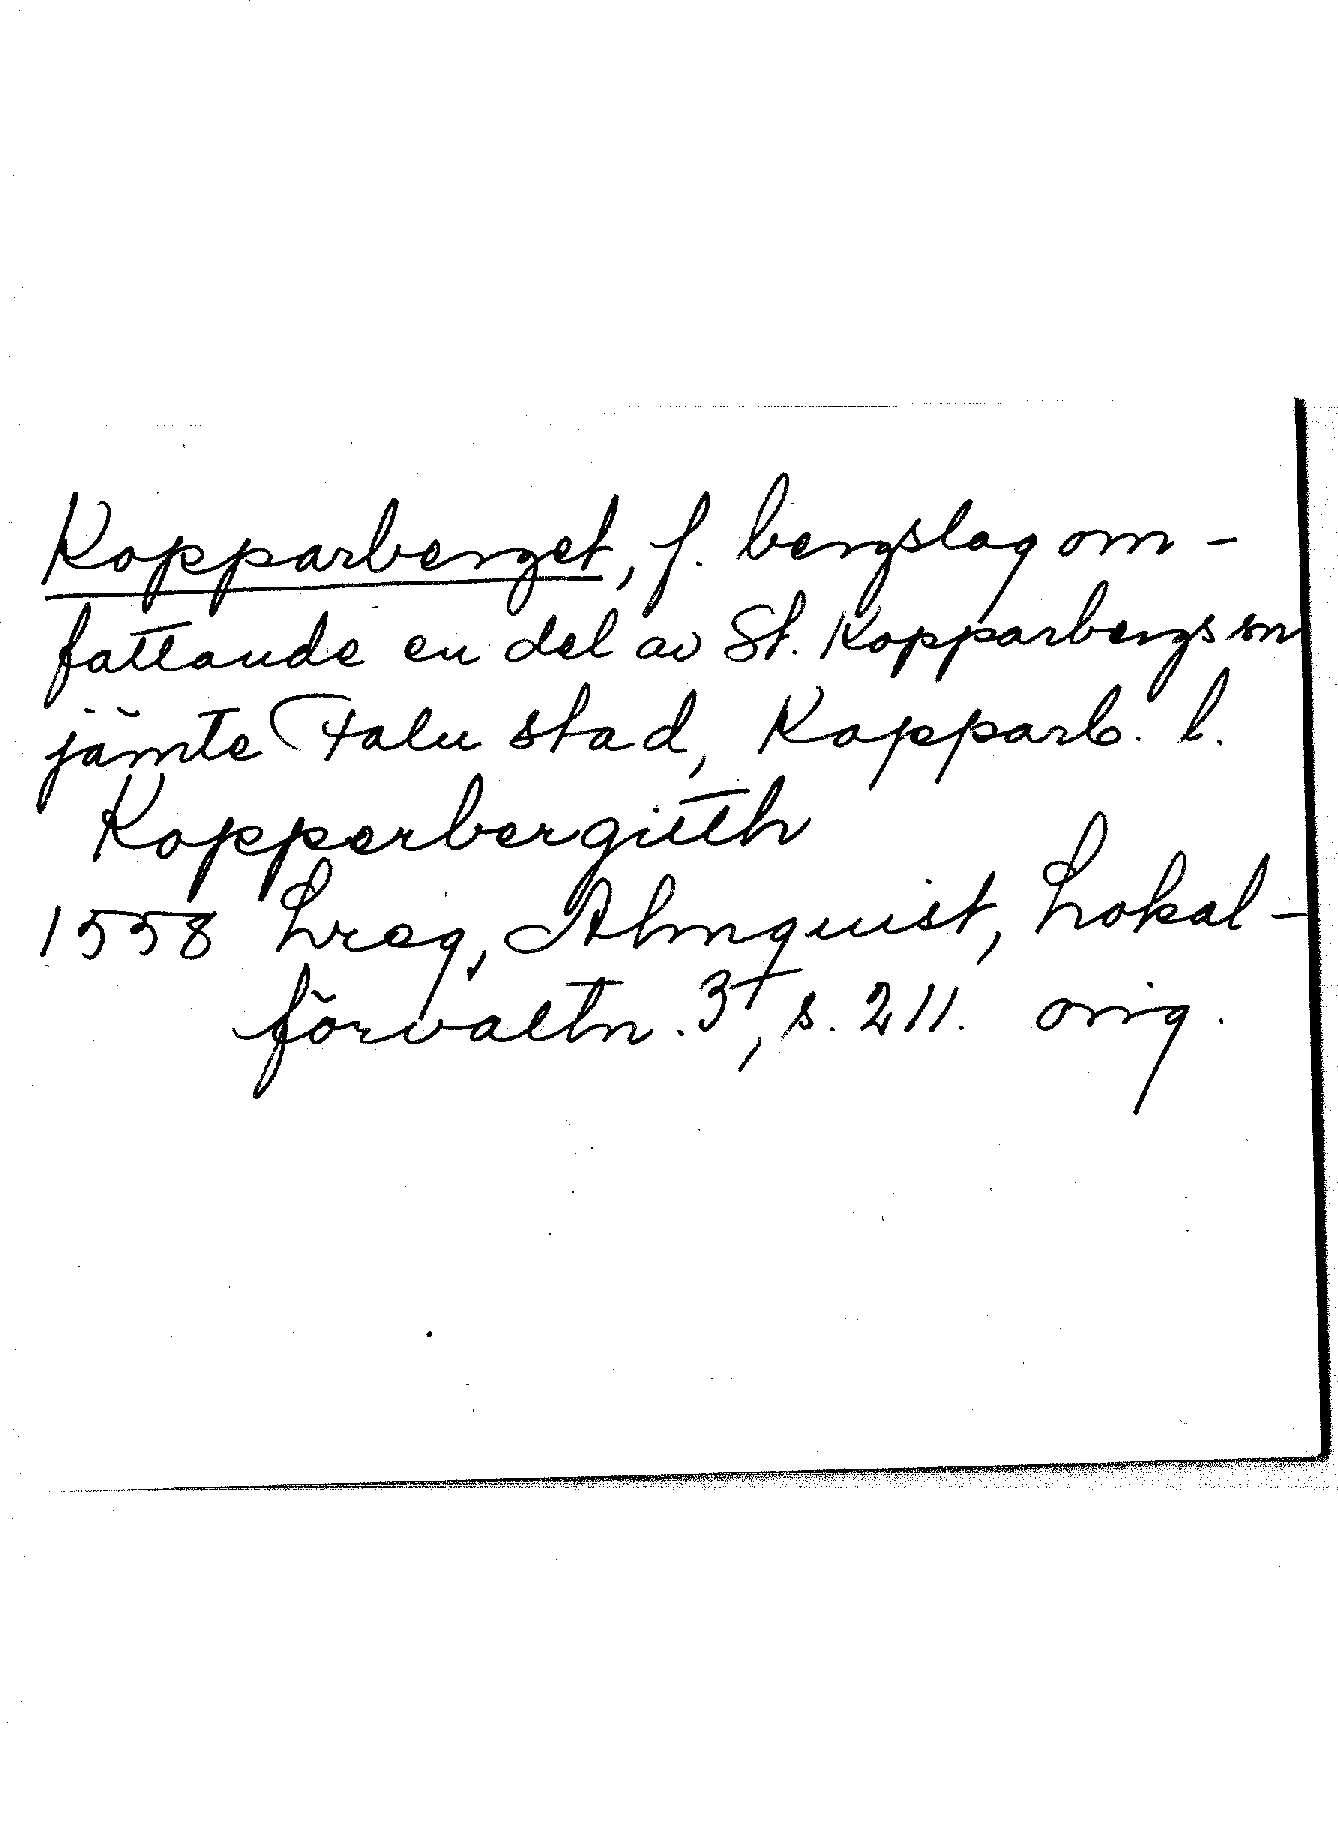 Kopparberget, f. bergslag om-
fattande en del av St. Kopparbergs sn
jämte Falu stad, Kopparb. l.
Kopperbergitth
1558 Lreg, Almquist, Lokal-
förvaltn. 3†, s. 211. orig.